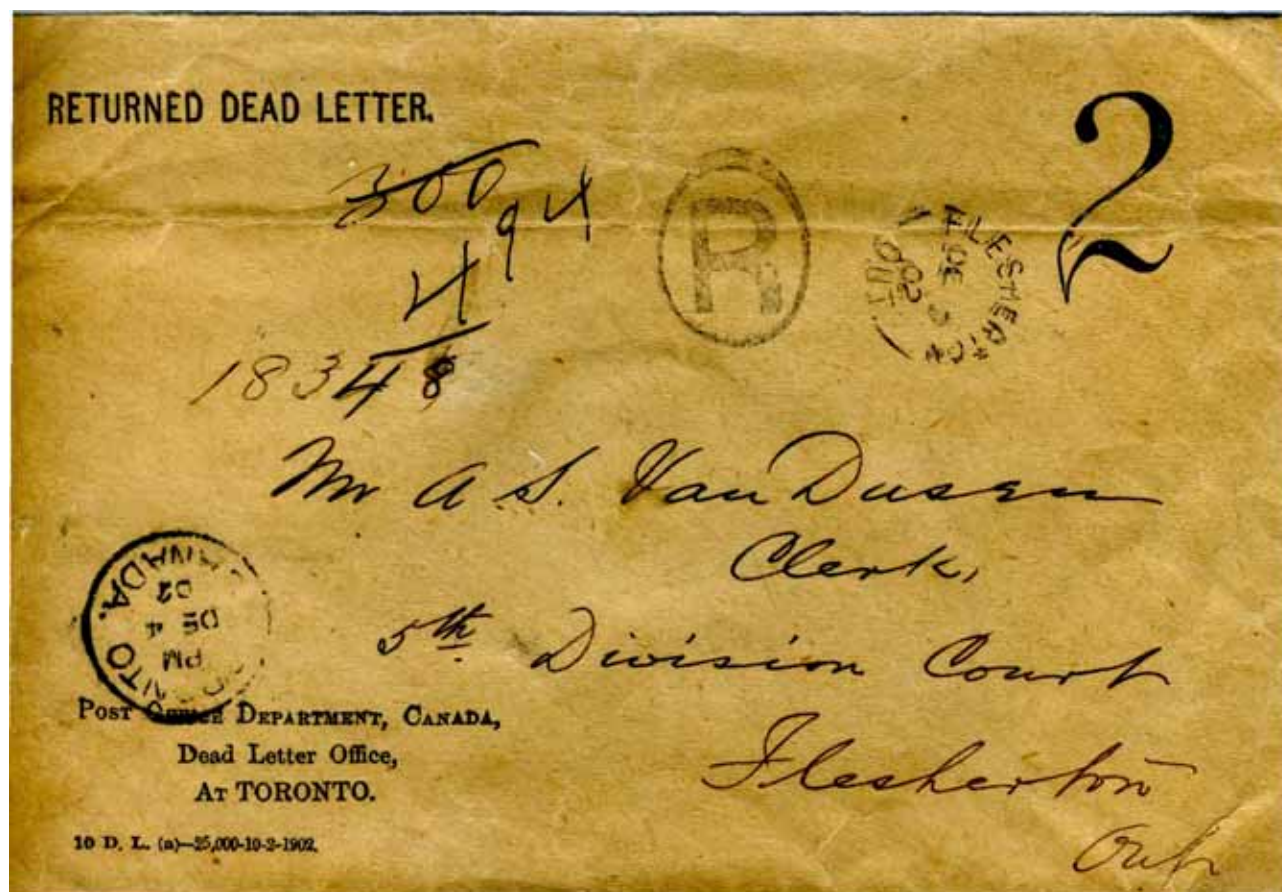 RETURNED DEAD LETTER.
2
300
94
4
18348
R
FLESHERTO
DE 5
02
ONT
Mr A. S. Van Dusen
Clerk,
5th Division Court
Flesherton
Ont
CANADA. TORONTO
PM
DE 4
02
POST OFFICE DEPARTMENT, CANADA,
Dead Letter Office,
AT TORONTO.
10 D. L. (a)—25,000-10-2-1902.